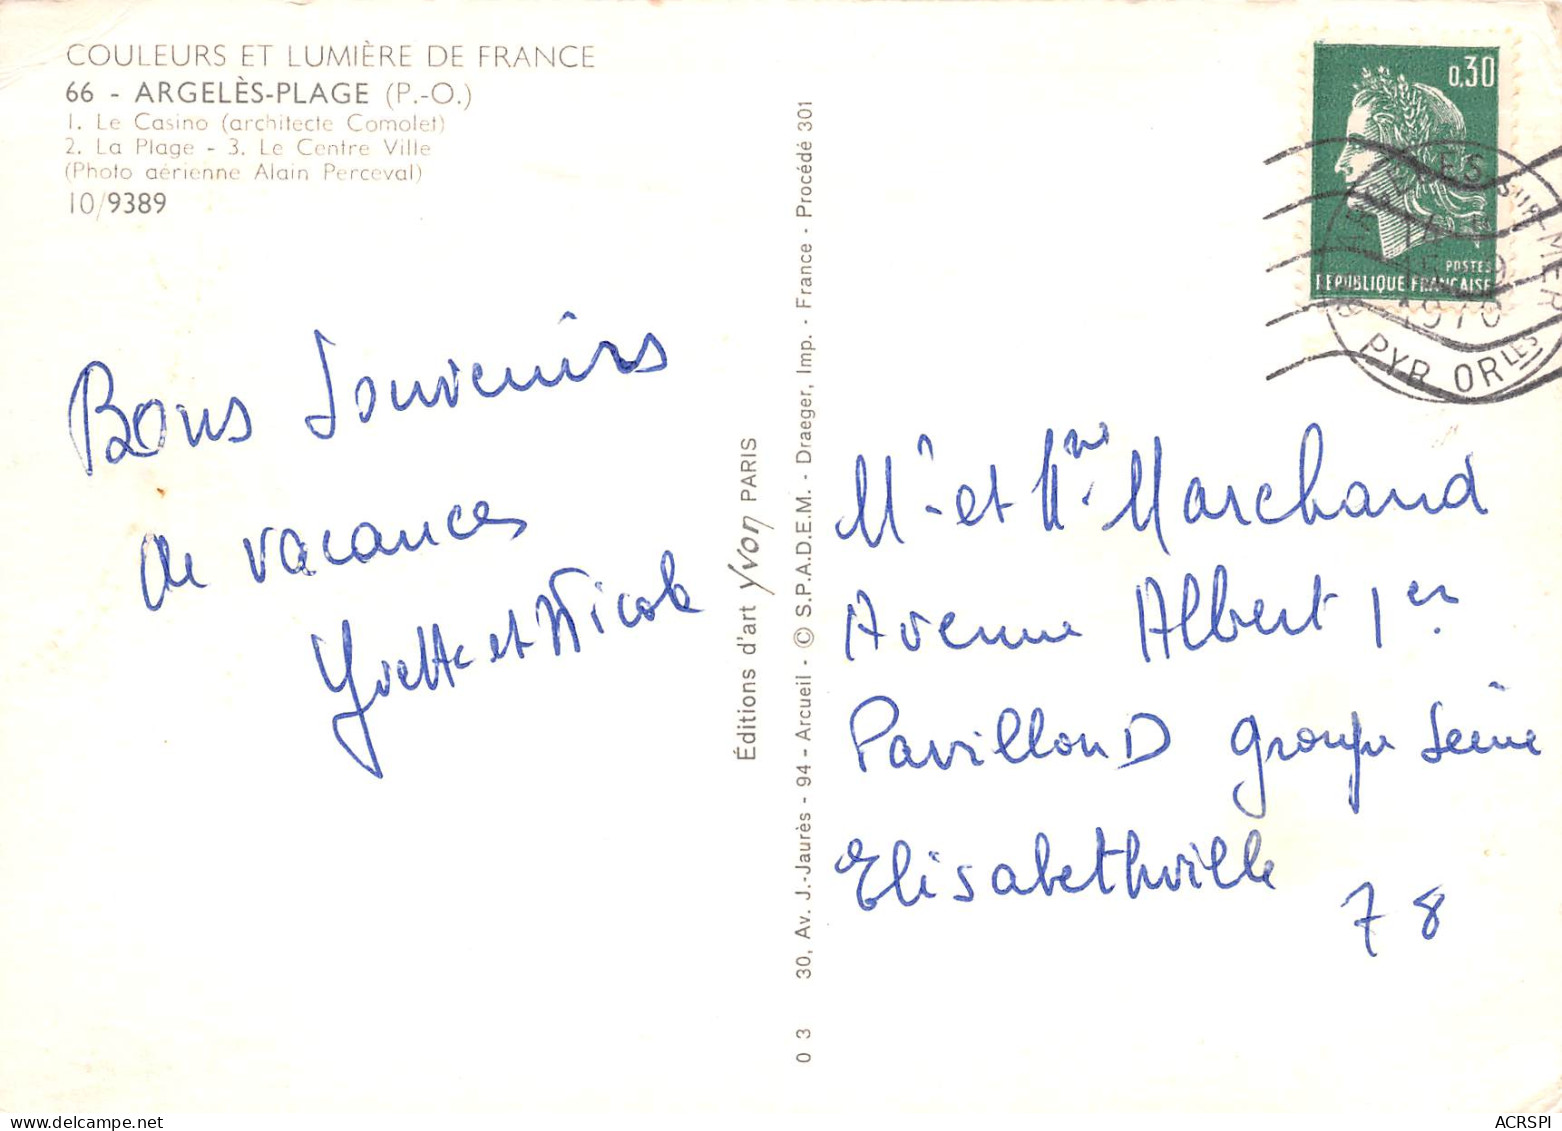 COULEURS ET LUMIÈRE DE FRANCE
66 - ARGELÈS-PLAGE (P.-O.)
1. Le Casino (architecte Comolet)
2. La Plage - 3. Le Centre Ville
(Photo aérienne Alain Perceval)
10/9389
Bons Souvenirs
de vacances
Yvette et Nicole
Éditions d'art Yvon PARIS
30, Av. J.-Jaurès - 94 - Arcueil - © S.P.A.D.E.M. - Draeger, Imp. - France - Procédé 301
0 3
0,30
POSTES
REPUBLIQUE FRANÇAISE
SUR MER
1970
PYR. ORLES
Mr et Mme Marchand
Avenue Albert 1er
Pavillon D groupe Seine
Elisabethville
78
ACRSPI